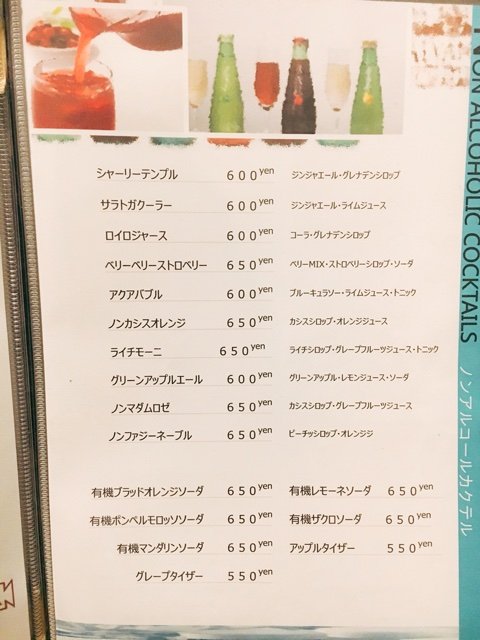 NON ALCOHOLIC COCKTAILS ノンアルコールカクテル
シャーリーテンプル 600yen ジンジャエール・グレナデンシロップ
サラトガクーラー 600yen ジンジャエール・ライムジュース
ロイロジャース 600yen コーラ・グレナデンシロップ
ベリーベリーストロベリー 650yen ベリーMIX・ストロベリーシロップ・ソーダ
アクアバブル 600yen ブルーキュラソー・ライムジュース・トニック
ノンカシスオレンジ 650yen カシスシロップ・オレンジジュース
ライチモーニ 650yen ライチシロップ・グレープフルーツジュース・トニック
グリーンアップルエール 600yen グリーンアップル・レモンジュース・ソーダ
ノンマダムロゼ 650yen カシスシロップ・グレープフルーツジュース
ノンファジーネーブル 650yen ピーチッシロップ・オレンジジ
有機ブラッドオレンジソーダ 650yen 有機レモーネソーダ 650yen
有機ポンペルモロッソソーダ 650yen 有機ザクロソーダ 650yen
有機マンダリンソーダ 650yen アップルタイザー 550yen
グレープタイザー 550yen